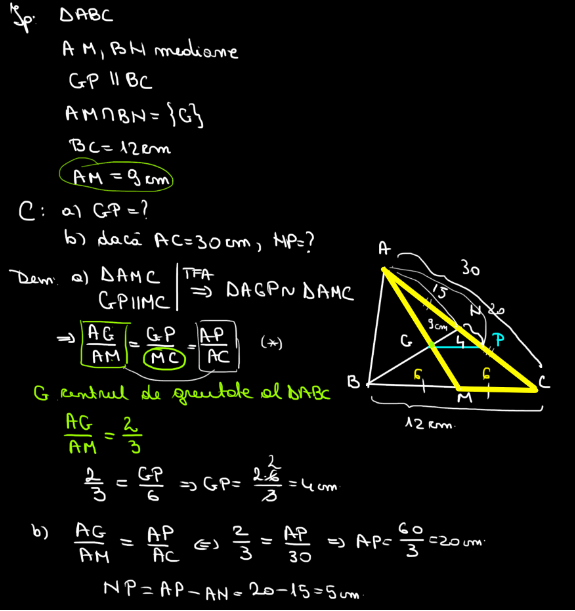 Ip. ΔABC
AM, BN mediane
GP || BC
AM∩BN = {G}
BC = 12cm
AM = 9cm
C: a) GP = ?
b) dacă AC = 30cm, NP = ?
Dem: a) ΔAMC | TFA
GP || MC | ⇒ ΔAGP ~ ΔAMC
⇒ AG/AM = GP/MC = AP/AC (*)
G centrul de greutate al ΔABC
AG/AM = 2/3
2/3 = GP/6 ⇒ GP = 2·6/3 = 4cm
2
b) AG/AM = AP/AC ⇔ 2/3 = AP/30 ⇒ AP = 60/3 = 20cm
NP = AP − AN = 20 − 15 = 5cm
A
30
15
N 20
9cm
G 4 P
B 6 M 6 C
12cm